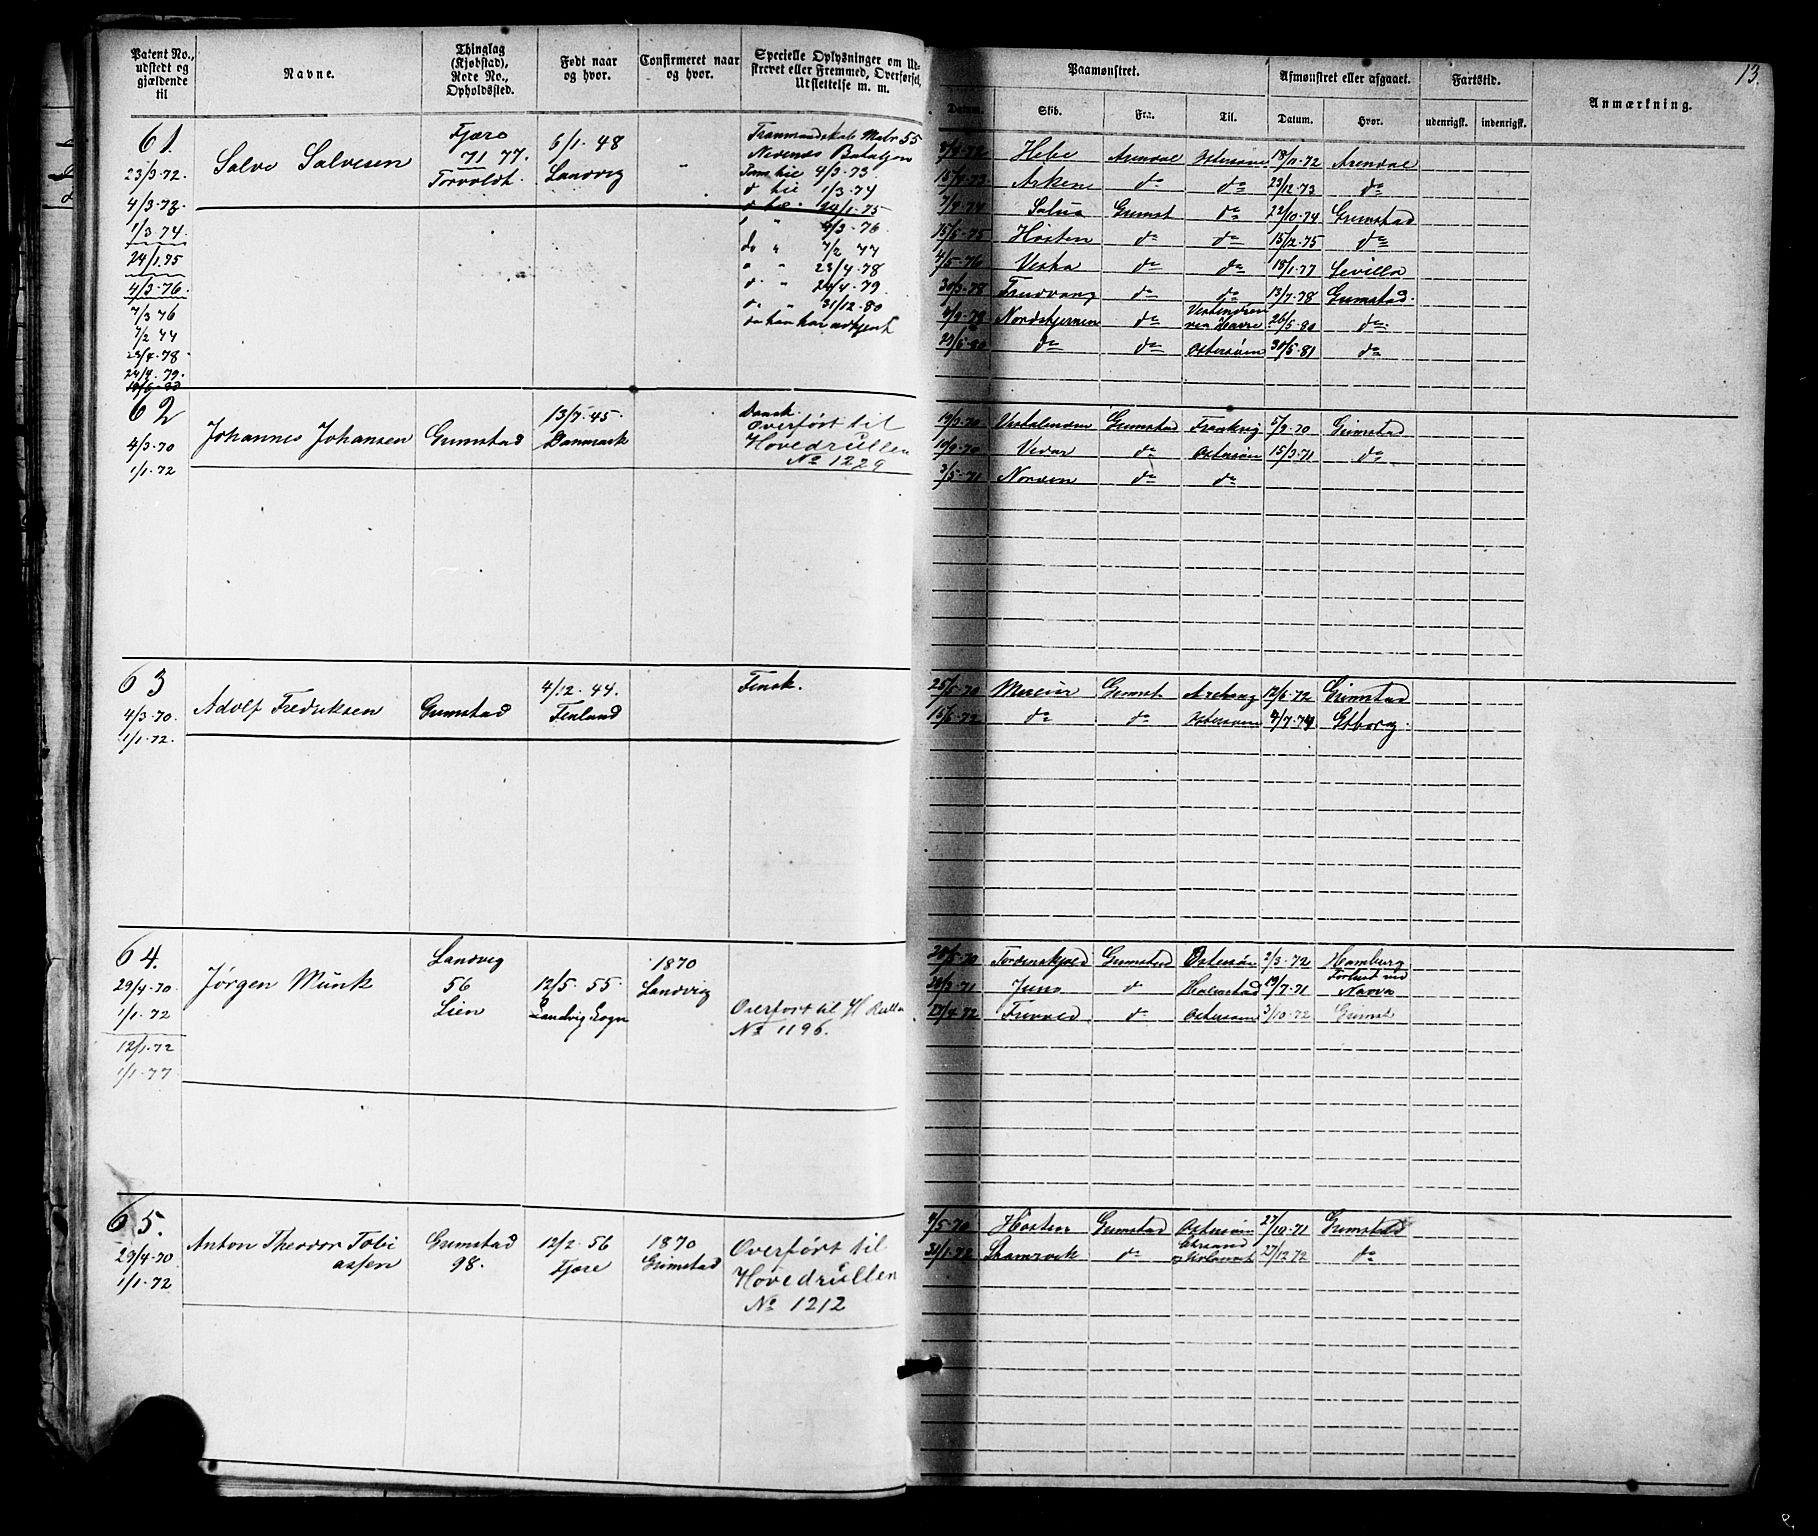 13.
Patent No., udstedt og gjældende til
Navne.
Thinglag (Kjøbstad), Rode No., Opholdssted.
Født naar og hvor.
Confirmeret naar og hvor.
Specielle Oplysninger om Udskrevet eller Fremmed, Overførsel, Udslettelse m. m.
Paamønstret.
Afmønstret eller afgaaet.
Fartstid.
Anmærkning.
Datum.
Skib.
Fra.
Til.
Datum.
Hvor.
udenrigsk.
indenrigsk.
61.
23/3-72.
4/3-73.
1/3-74.
24/1-75
4/3-76.
7/3 76
7/2 77
23/4-78.
24/4-79.
Salve Salvesen
Fjære
71 77.
Torvoldt.
6/1-48
Landvig
Nedenes Bataljon
4/3-73.
d til 1/3-74
24/1-75
4/3-76
do " 7/2 77
" " 23/4-78
d. " 24/4-79.
do " 31/12-80
Hebe Arendal Østersøen 18/11-72 Arendal
15/4-73 Arken do do 23/12-73 do
7/4-74 Grimst do 22/10-74 Grimstad
15/5-75 Høsten do do 15/2-75 do
4/5-76 Vesta do do 18/1-77 Sevilla
30/3-78 Trudvang do do 13/7-78 Grimstad.
4/9-78 Nordstjernen do 26/5-80 do
do do Østersøen 30/5-81 do
62
4/3-70
1/1-72
Johannes Johansen
Grimstad
13/7-45.
Danmark
Dansk.
Overført til
Hovedrullen
No 1229
19/3-70 Grimstad 5/9-70 Grimstad
10/9-70 Vedar do Østersøen 15/3-71 do
3/5-71 Norden do do
63
4/3-70.
1/1-72.
Adolf Fredriksen
Grimstad
4/12-44.
Finland
Finsk.
25/5-70 Grimst. 12/6-72 Grimstad
15/6-72 do do Østersøen Gtborg.
64.
29/4-70
1/1-72
12/1-72
1/1-77
Jørgen Munk
Landvig
56
Lien
12/5-55
Landvig Sogn
1870
Landvig
Overført til H Rulle
No 1196.
20/5-70 Tordenskjold Grimstad Østersøen 2/3-72 Hamburg
Juno d Halmstad 19/7-71 Forlist ved Narva
d Østersøen 3/10-72 Grimst
65.
29/4-70
1/1-72
Anton Theodor Tobi
assen
Grimstad
98.
12/2-56
Fjære
1870
Grimstad
Overført til
Hovedrullen
No 1212
9/5-70 Grimstad Østersøen 27/10-71 Grimstad
31/1-72 Shamrock do 27/12-72 do